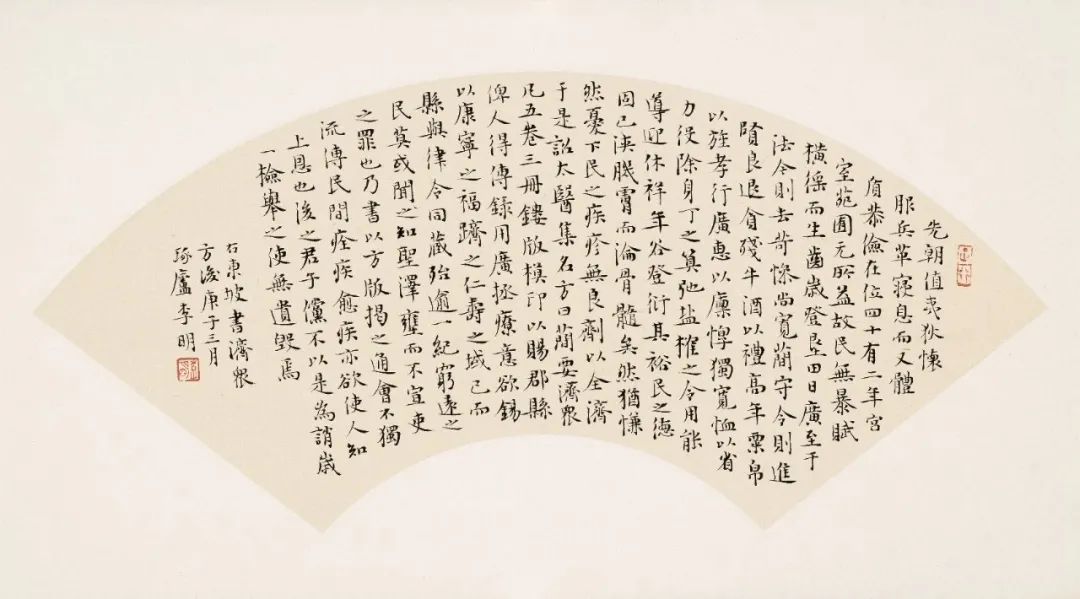 先朝值夷狄懷
服兵革寢息而又體
質恭儉在位四十有二年宮
室苑囿元所益故民無暴賦
橫徭而生齒歲登墾田日廣至于
法令則去苛慘尚寬蕳守令則進
賢良退貪殘牛酒以禮高年粟帛
以旌孝行廣惠以廩惸獨寬恤以省
力役除身丁之筭弛盐榷之令用能
導迎休祥年谷登衍其裕民之德
固已浹肌膚而淪骨髓矣然猶慊
然憂下民之疾疹無良劑以全濟
于是詔太醫集名方曰蕳要濟眾
凡五卷三冊鏤版模印以賜郡縣
俾人得傳錄用廣拯療意欲錫
以康寧之福躋之仁壽之域已而
縣與律令同藏殆逾一紀窮遠之
民莫或聞之知聖澤壅而不宣吏
之罪也乃書以方版揭之通會不獨
流傳民間痊疾愈疾亦欲使人知
上恩也後之君子儻不以是為誚歲
一檢舉之使無遺毀焉
右東坡書濟眾
方後庚子三月
琢廬李明